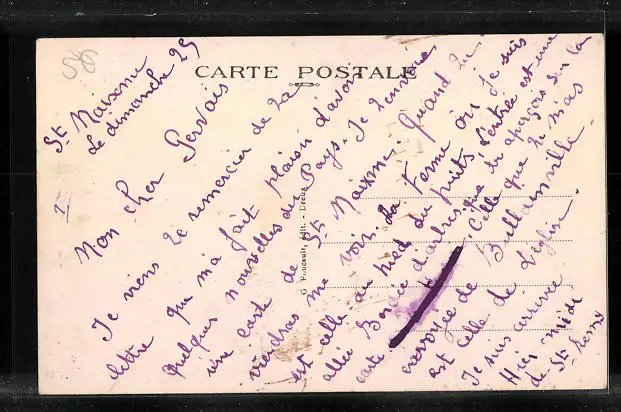 CARTE POSTALE
G Foucault, édit. - Dreux
St Maixme
Le dimanche 25
Mon cher Gervais
Je viens te remercier de ta
lettre qui m'a fait plaisir d'avoir
quelques nouvelles du Pays. Je t'envoie
une carte de St Maixme. Quand tu
viendras me voir. La ferme où je suis
est celle au pied du puits l'entrée est une
allée Bordée d'arbres que tu aperçois sur la
carte. Celle que tu m'as
envoyée de
est celle de l'église.
Je suis arrivée
Hier midi
de St